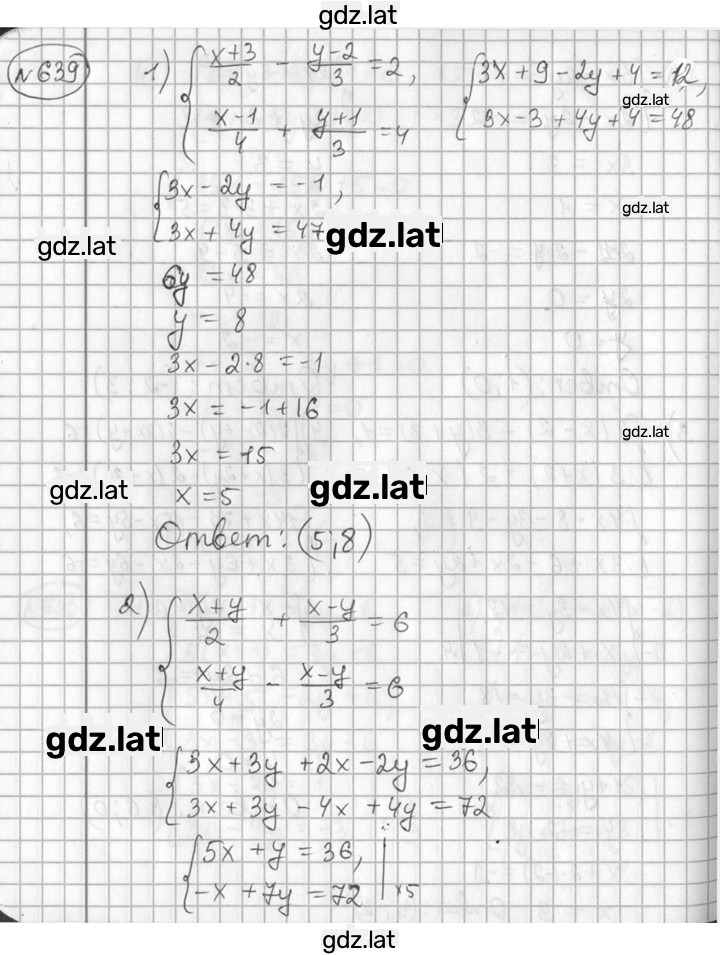 gdz.lat
№639 1) { (x+3)/2 - (y-2)/3 = 2, { 3x+9-2y+4=12,
gdz.lat
(x-1)/4 + (y+1)/3 = 4 3x-3+4y+4=48
{ 3x-2y = -1,
gdz.lat
3x+4y = 47 gdz.lat
gdz.lat
6y = 48
y = 8
3x-2·8 = -1
3x = -1+16
gdz.lat
3x = 15
gdz.lat x = 5 gdz.lat
Ответ: (5;8)
2) { (x+y)/2 + (x-y)/3 = 6
(x+y)/4 - (x-y)/3 = 6
gdz.lat gdz.lat
{ 3x+3y+2x-2y=36,
3x+3y-4x+4y=72
{ 5x+y=36,
-x+7y=72 | ×5
gdz.lat